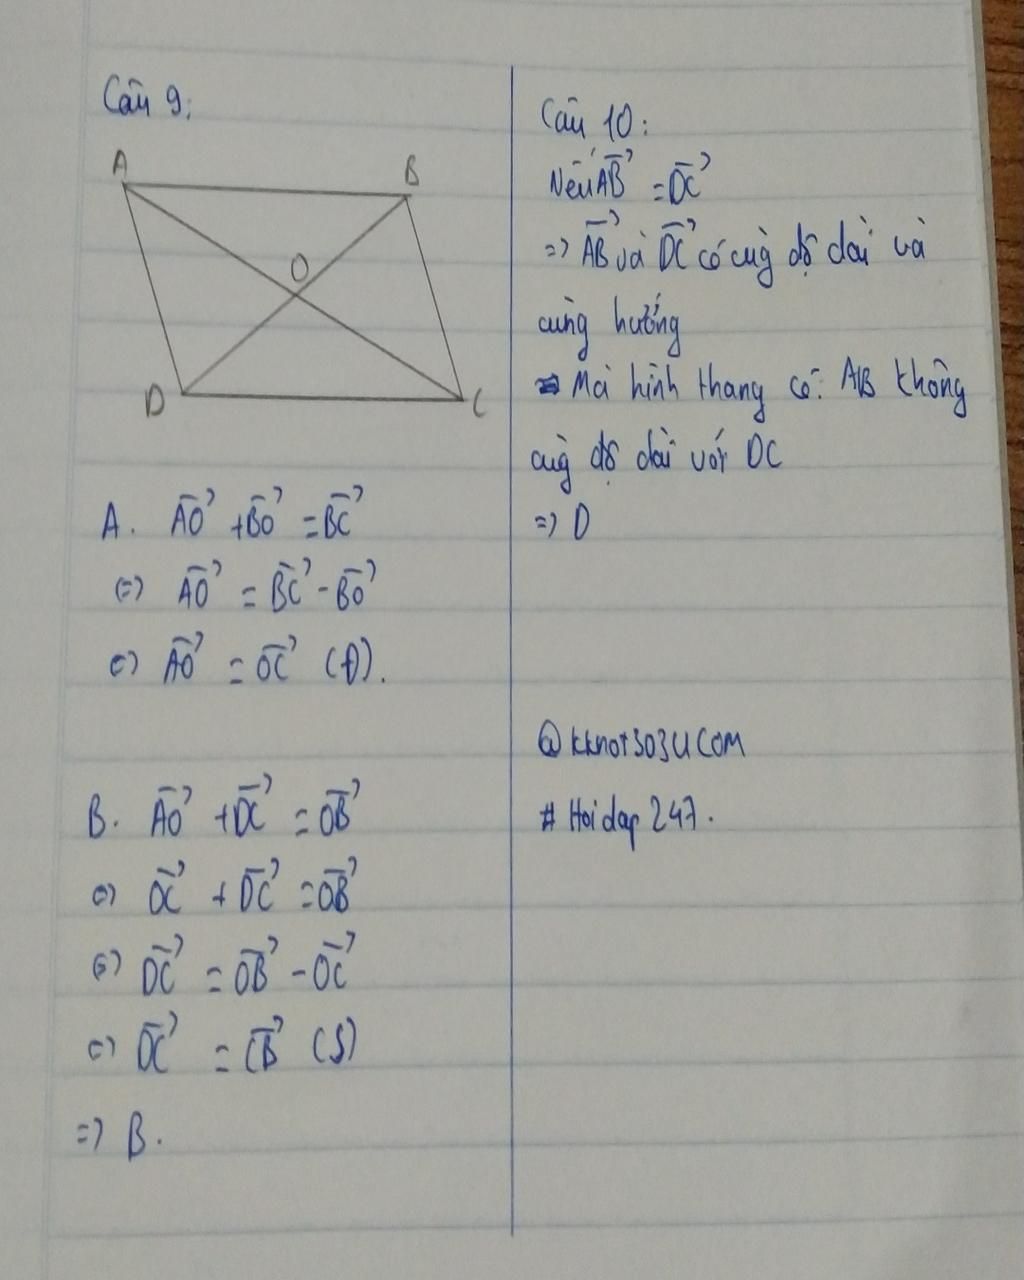 Câu 9:
A
B
O
D
C
A. AO⃗ + BO⃗ = BC⃗
<=> AO⃗ = BC⃗ - BO⃗
<=> AO⃗ = OC⃗ (Đ).
B. AO⃗ + DC⃗ = OB⃗
<=> OC⃗ + DC⃗ = OB⃗
<=> DC⃗ = OB⃗ - OC⃗
<=> DC⃗ = CB⃗ (S)
=> B.
Câu 10:
Nếu AB⃗ = DC⃗
=> AB⃗ và DC⃗ có cùg độ dài và
cùng hướng
Mà hình thang có: AB không
cùg độ dài với DC
=> D
@kknot3034COM
# Hoidap 247.